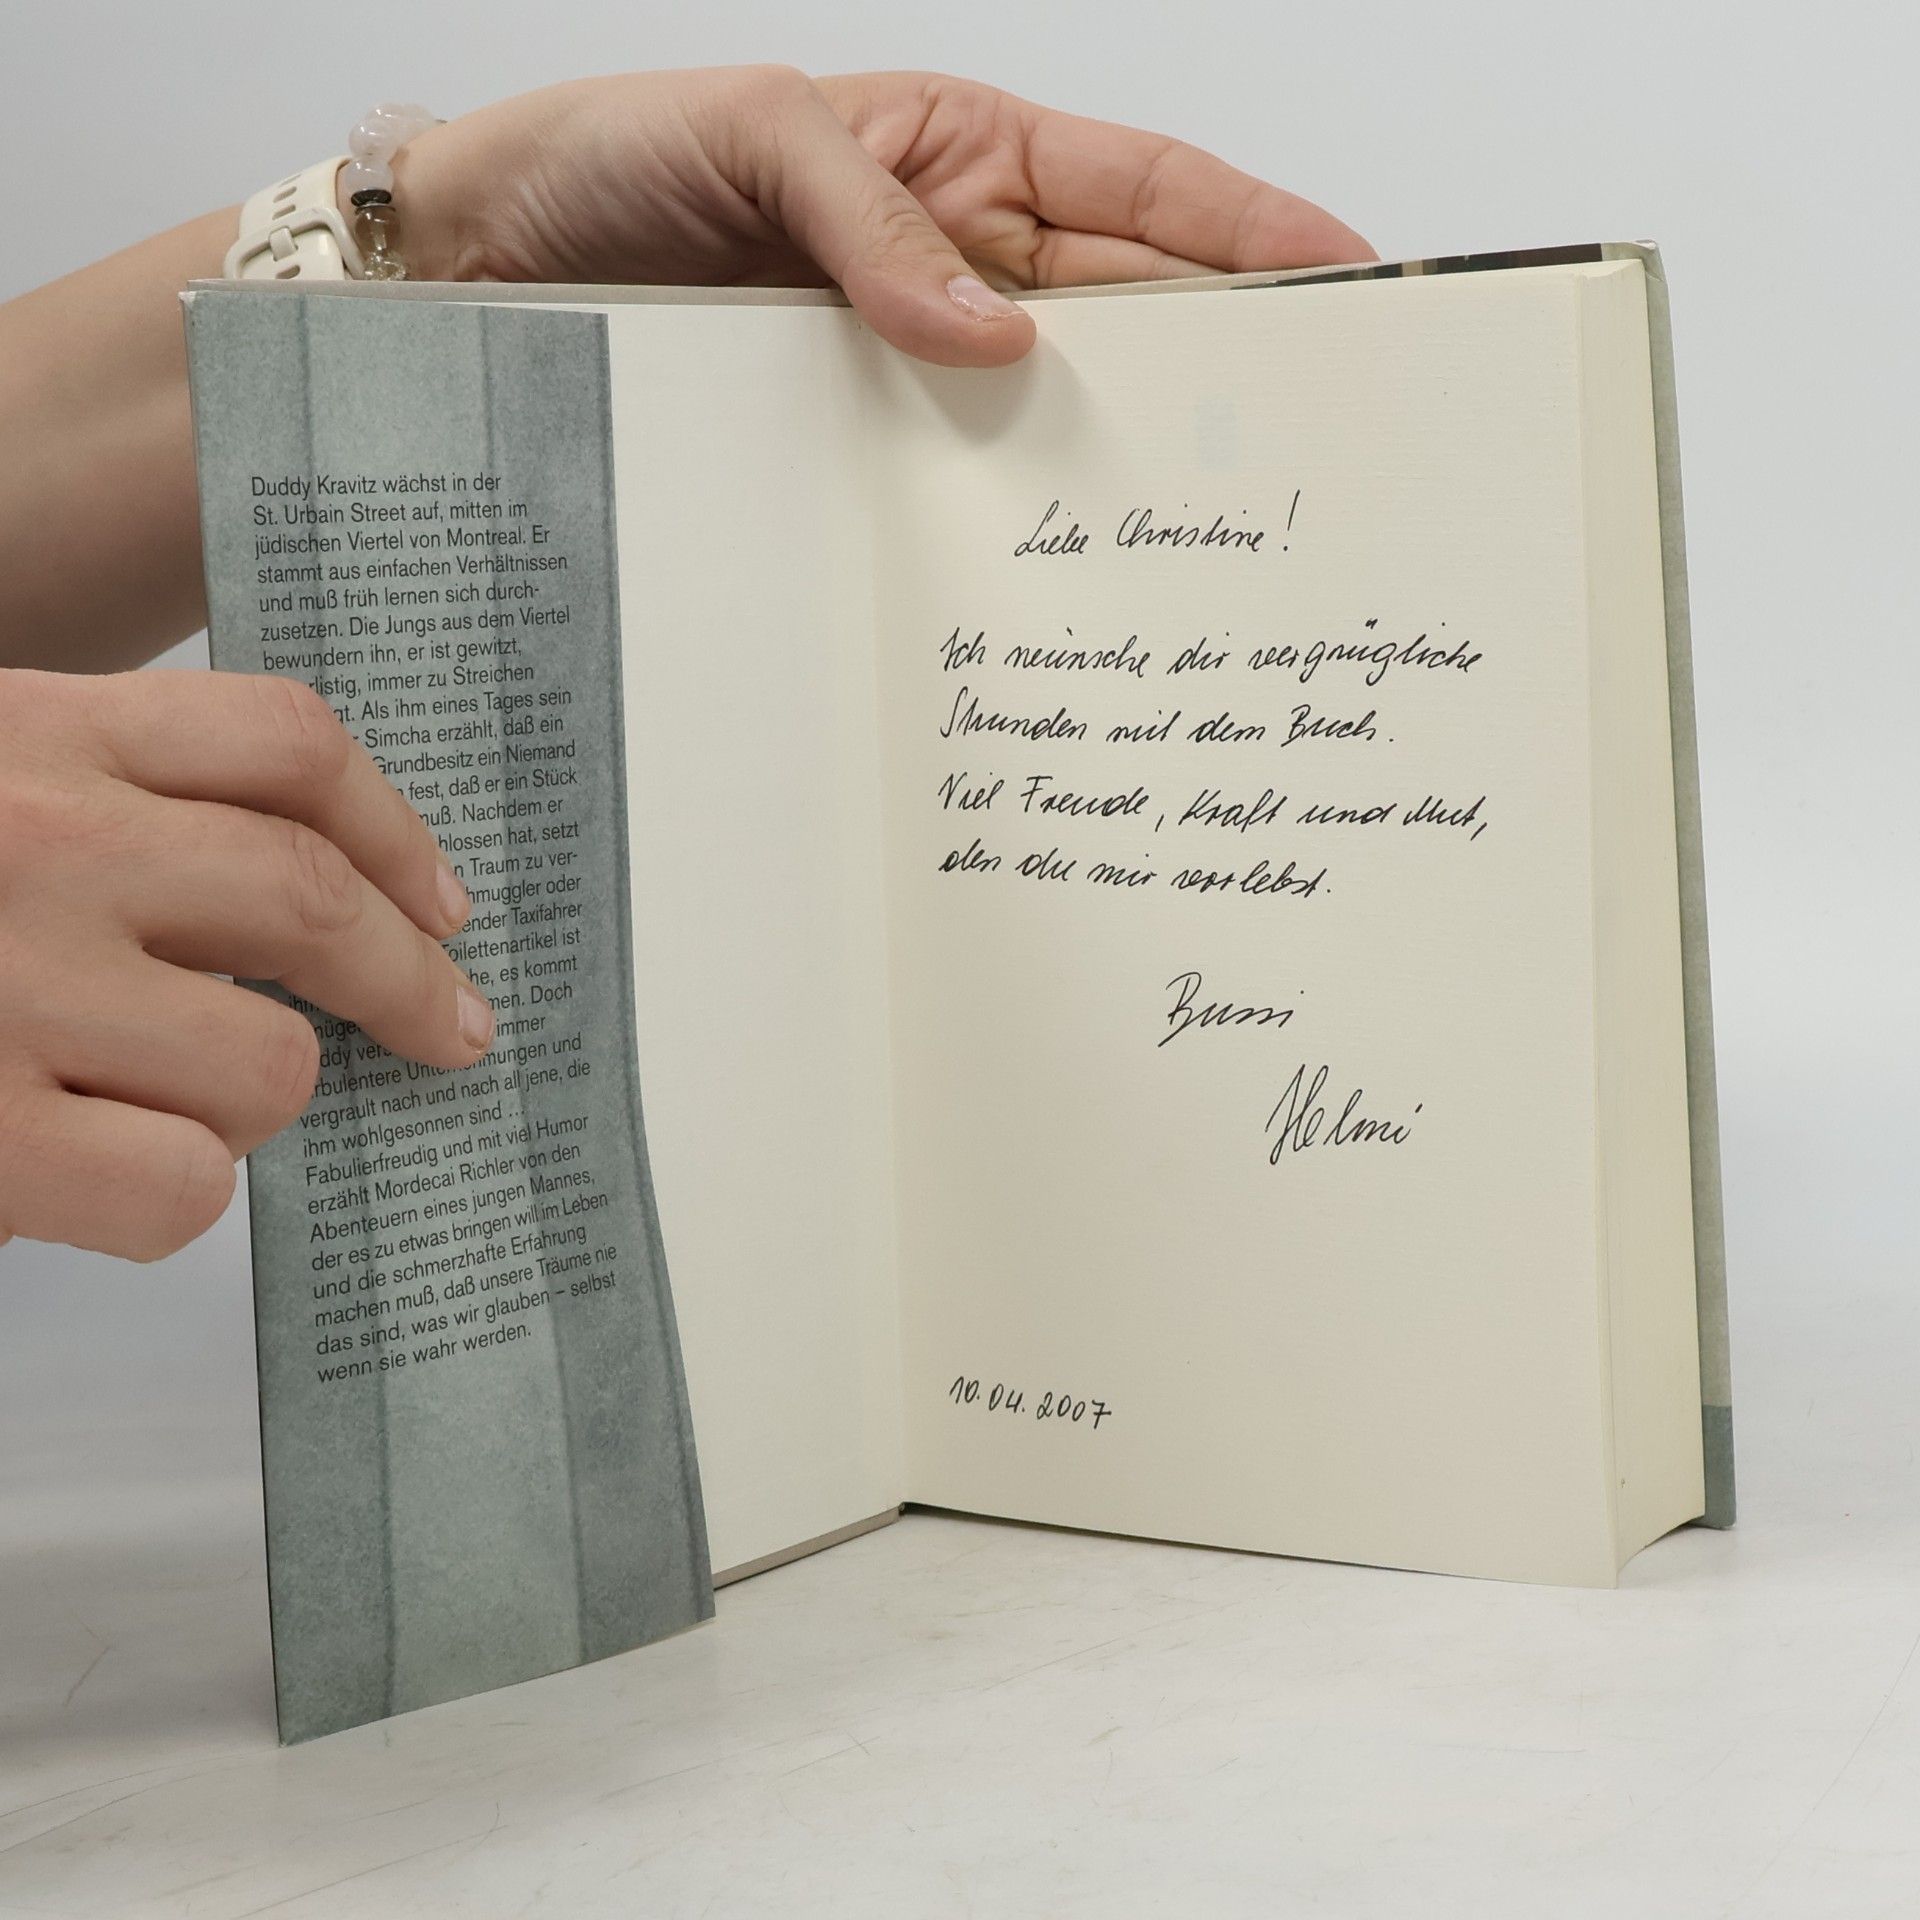 Duddy Kravitz wächst in der
St. Urbain Street auf, mitten im
jüdischen Viertel von Montreal. Er
stammt aus einfachen Verhältnissen
und muß früh lernen sich durch-
zusetzen. Die Jungs aus dem Viertel
bewundern ihn, er ist gewitzt,
rlistig, immer zu Streichen
gt. Als ihm eines Tages sein
Simcha erzählt, daß ein
Grundbesitz ein Niemand
fest, daß er ein Stück
muß. Nachdem er
hlossen hat, setzt
n Traum zu ver-
hmuggler oder
ender Taxifahrer
Toilettenartikel ist
he, es kommt
ihm men. Doch
nüge immer
ddy ver
rbulentere Unternehmungen und
vergrault nach und nach all jene, die
ihm wohlgesonnen sind ...
Fabulierfreudig und mit viel Humor
erzählt Mordecai Richler von den
Abenteuern eines jungen Mannes,
der es zu etwas bringen will im Leben
und die schmerzhafte Erfahrung
machen muß, daß unsere Träume nie
das sind, was wir glauben – selbst
wenn sie wahr werden.
Liebe Christine!
Ich wünsche dir vergnügliche
Stunden mit dem Buch.
Viel Freude, Kraft und Mut,
den du mir vorlebst.
Bussi
Helmi
10.04.2007